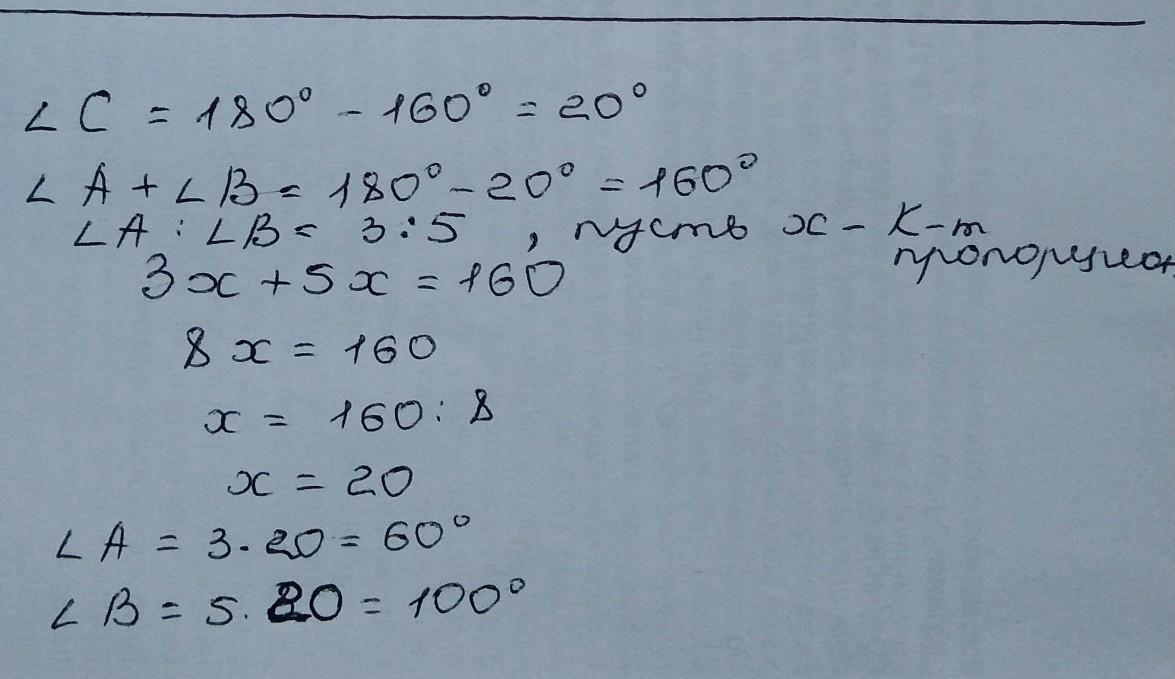 ∠C = 180° - 160° = 20°
∠A + ∠B = 180° - 20° = 160°
∠A : ∠B = 3:5 , пусть x - к-т
пропорцион
3x + 5x = 160
8x = 160
x = 160 : 8
x = 20
∠A = 3 · 20 = 60°
∠B = 5 · 20 = 100°